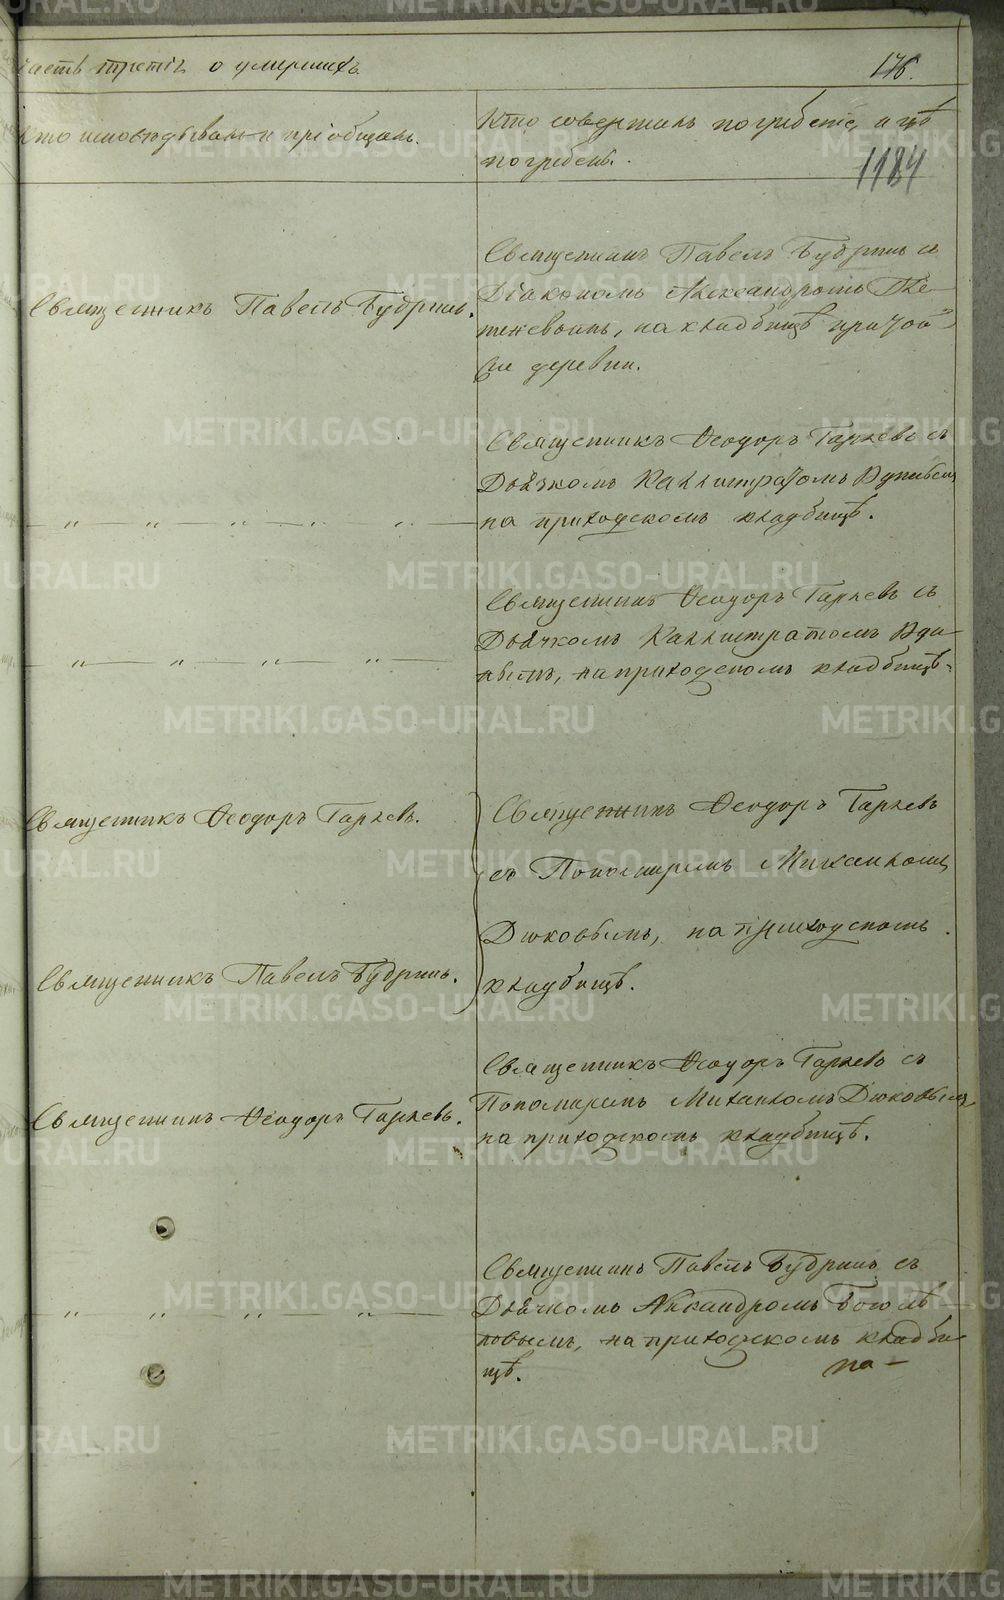 часть третія о умершихъ.
176.
Кто исповѣдывалъ и пріобщалъ.
Кто совершалъ погребеніе и гдѣ
погребенъ.
1184
Священникъ Павелъ Будринъ.
Священникъ Павелъ Будринъ съ
Діакономъ Александромъ
на кладбищѣ при той
же деревни.
Священникъ Ѳеодоръ Гаряевъ съ
Дьячкомъ Каллистратомъ
на приходскомъ кладбищѣ.
Священникъ Ѳеодоръ Гаряевъ съ
Дьячкомъ Каллистратомъ
на приходскомъ кладбищѣ.
Священникъ Ѳеодоръ Гаряевъ.
Священникъ Ѳеодоръ Гаряевъ
съ Пономаремъ Михаиломъ
Дюковымъ, на приходскомъ
кладбищѣ.
Священникъ Павелъ Будринъ.
Священникъ Ѳеодоръ Гаряевъ.
Священникъ Ѳеодоръ Гаряевъ съ
Пономаремъ Михаиломъ Дюковымъ,
на приходскомъ кладбищѣ.
Священникъ Павелъ Будринъ съ
Дьячкомъ Никандромъ Боголѣ-
повымъ, на приходскомъ кладби-
щѣ.
па-
METRIKI.GASO-URAL.RU